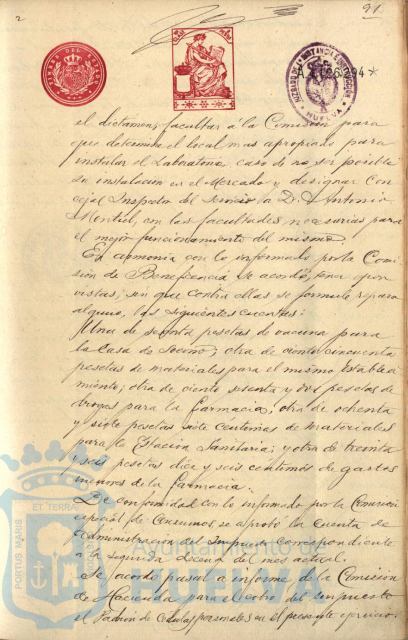 2
91
TIMBRE DEL ESTADO
JUZGADO DE 1ª INSTANCIA E INSTRUCCION
HUELVA
el dictamen, facultar á la Comisión para
que determine el local mas apropiado para
instalar el Laboratorio caso de no ser posible
su instalación en el Mercado y designar Con
cejal Inspector del servicio a D. Antonio
con las facultades necesarias para
el mejor funcionamiento del mismo.
En armonia con lo informado por la Comi
sión de Beneficencia se acordó, tener por
vistas, sin que contra ellas se formule reparo
alguno, las siguientes cuentas:
Una de setenta pesetas de vacuna para
la Casa de Socorro; otra de ciento cincuenta
pesetas de materiales para el mismo Estableci
miento; otra de ciento setenta y dos pesetas de
drogas para la farmacia; otra de ochenta
y siete pesetas siete centimos de materiales
para la Estación Sanitaria; y otra de treinta
y seis pesetas diez y seis centimos de gastos
menores de la farmacia.
De conformidad con lo informado por la Comisión
especial de Consumos, se aprobó la cuenta de
administración del Impuesto correspondiente
a la segunda decena del mes actual.
Se acordó pasar a informe de la Comisión
de Hacienda para el cobro del impuesto
el Padrón de Cédulas personales en el presente ejercicio.
PORTUS MARIS ET TERRAE CUSTODIA
Ayuntamiento de
HUELVA